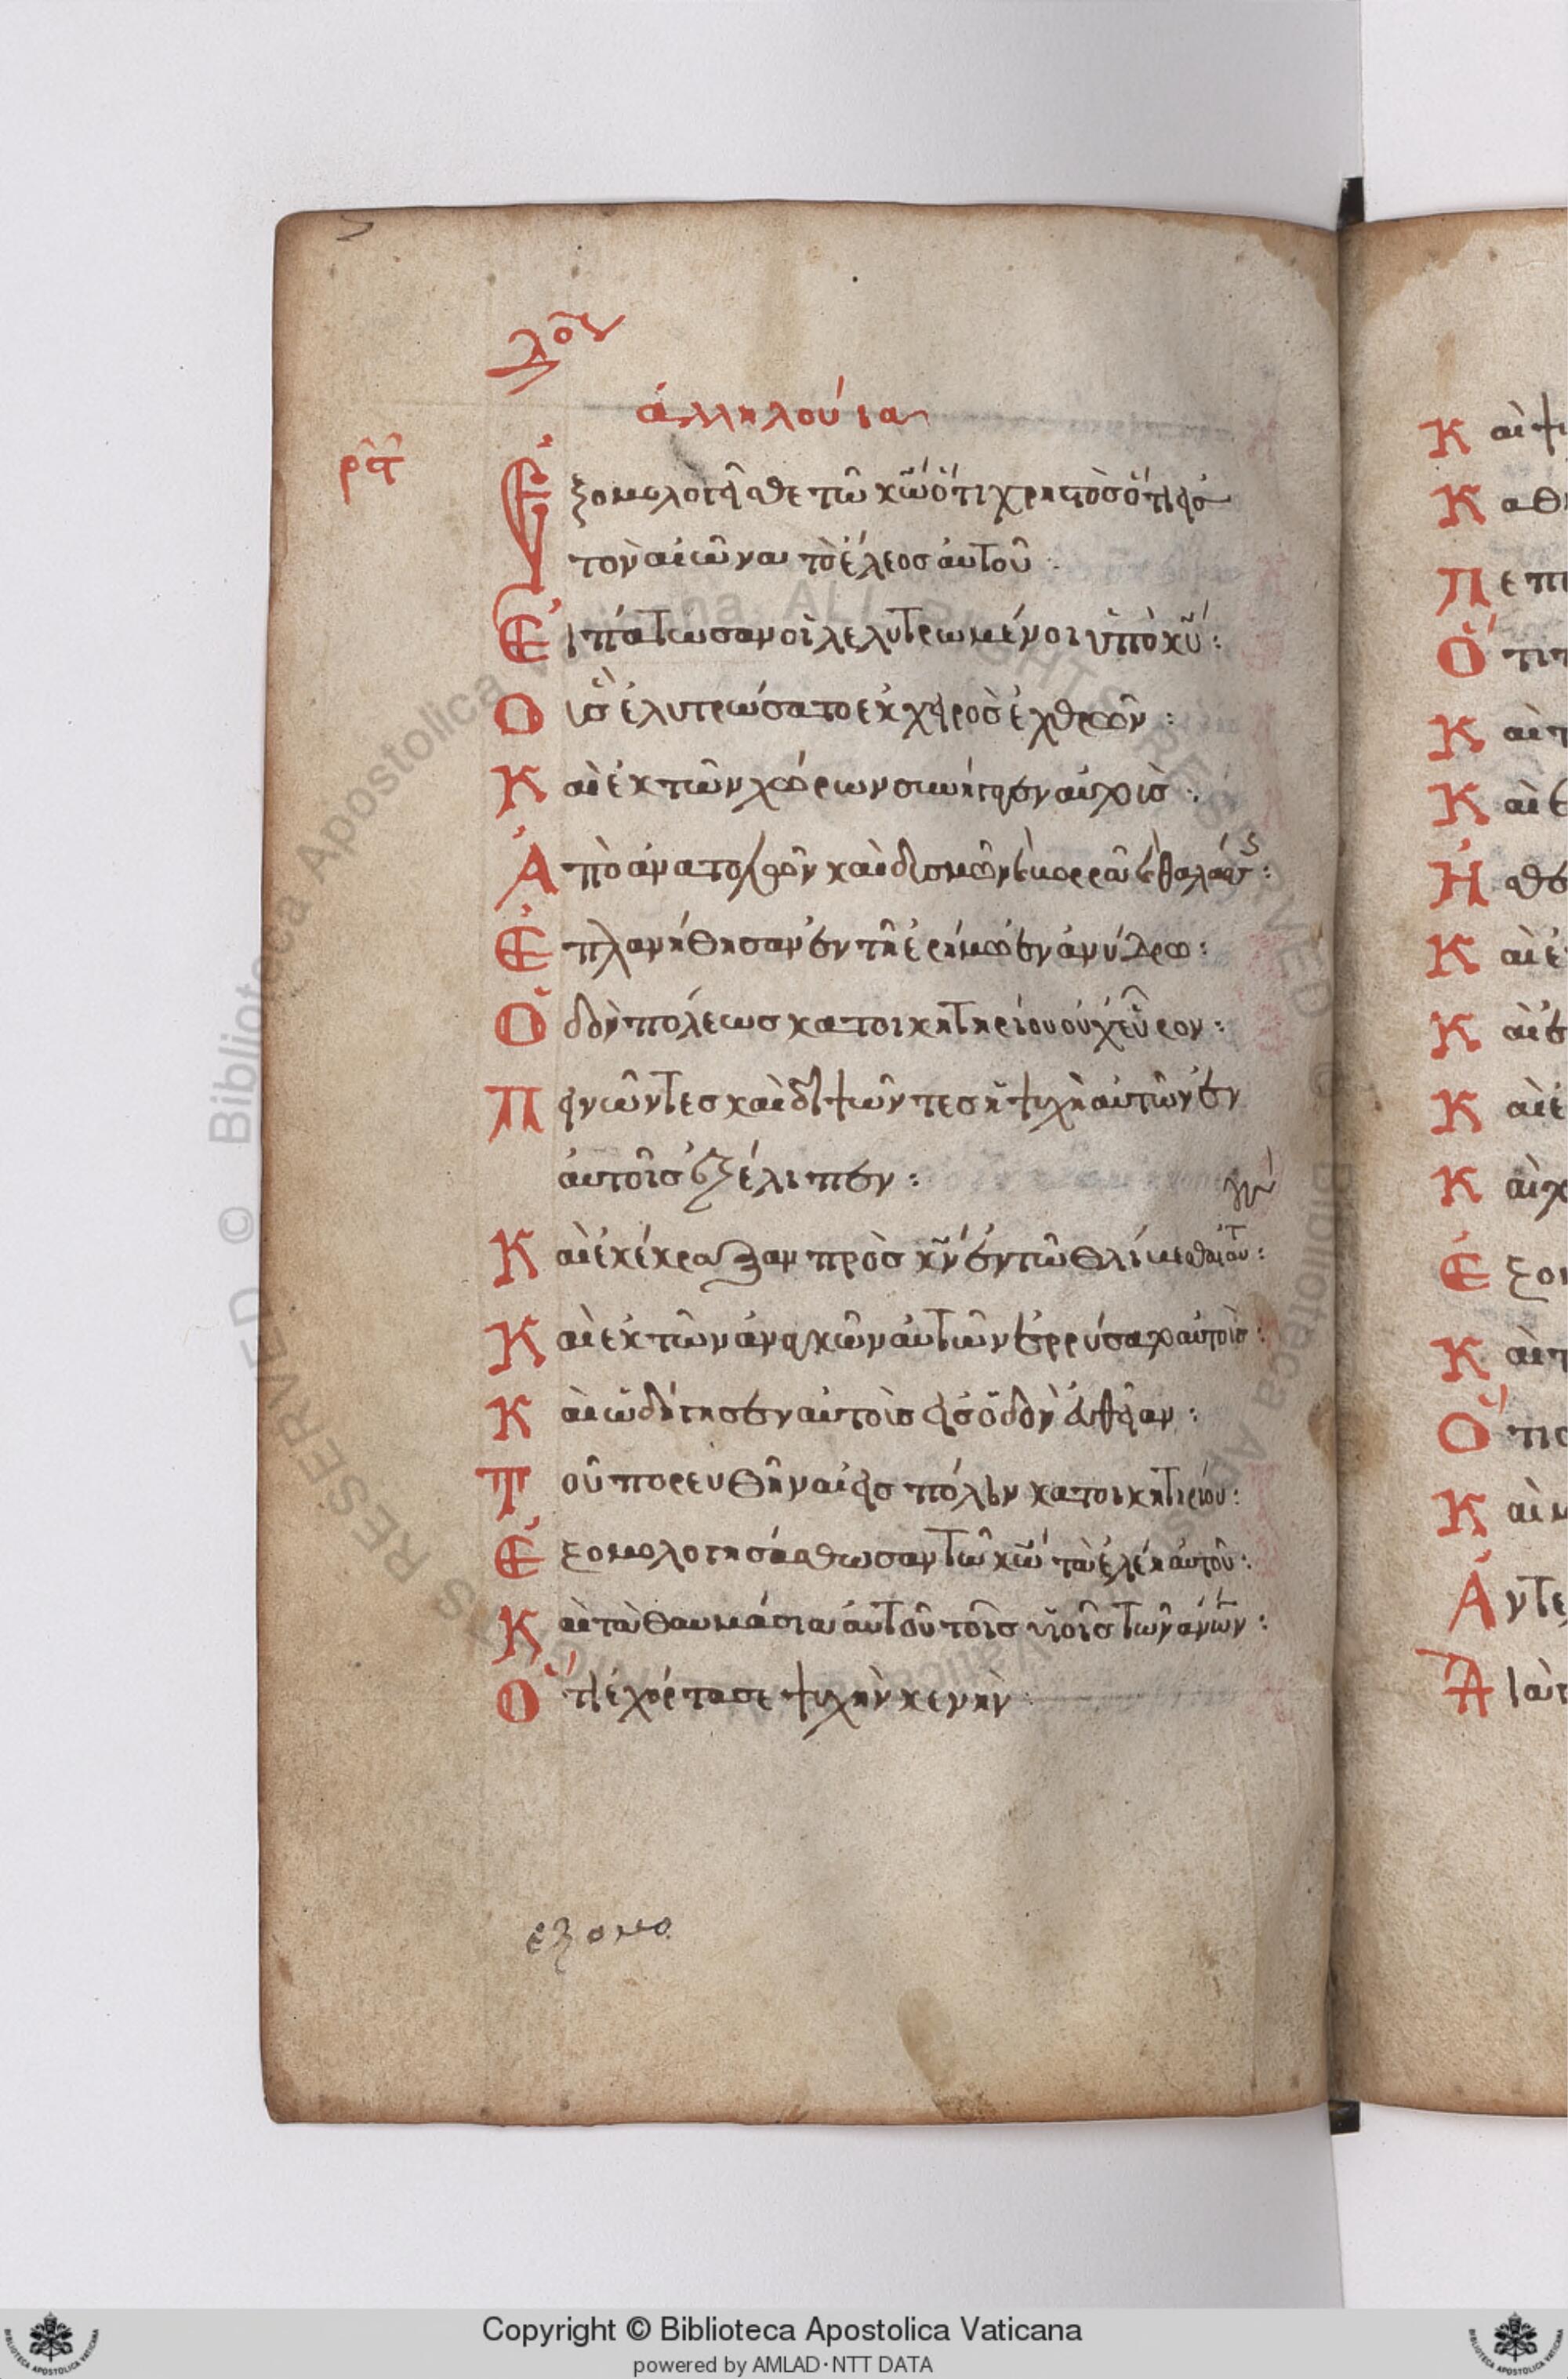 ἀλληλούϊα
ρϛ
Ἐξομολογεῖσθε τῶ κω ὅτι χρηστὸσ ὅτι εἰσ
τὸν αἰῶνα τὸ ἔλεοσ αὐτοῦ :
Εἰπάτωσαν οἱ λελυτρωμένοι ὑπὸ κυ :
Οὓσ ἐλυτρώσατο ἐκ χειρὸσ ἐχθρῶν :
Καὶ ἐκ τῶν χωρῶν συνήγαγεν αὐτοὺσ :
Ἀπὸ ἀνατολῶν καὶ δυσμῶν καὶ βορρᾶ καὶ θαλάσσησ :
Ἐπλανήθησαν ἐν τῆ ἐρήμω ἐν ἀνύδρω :
Ὁδὸν πόλεωσ κατοικητηρίου οὐχ εὗρον :
Πεινῶντεσ καὶ διψῶντεσ ἡ ψυχὴ αὐτῶν ἐν
αὐτοῖσ ἐξέλιπεν :
Καὶ ἐκέκραξαν πρὸσ κν ἐν τῶ θλίβεσθαι αὐτούσ :
Καὶ ἐκ τῶν ἀναγκῶν αὐτῶν ἐρρύσατο αὐτοὺσ :
Καὶ ὡδήγησεν αὐτοὺσ εἰσ ὁδὸν εὐθεῖαν :
Τοῦ πορευθῆναι εἰσ πόλιν κατοικητιρίου :
Ἐξομολογησάσθωσαν τῶ κω τὰ ἐλέη αὐτοῦ :
Καὶ τὰ θαυμάσια αὐτοῦ τοῖσ υἱοῖσ τῶν ανων :
Ὅτι ἐχόρτασε ψυχὴν κενὴν :
εξομο
Copyright © Biblioteca Apostolica Vaticana
powered by AMLAD·NTT DATA